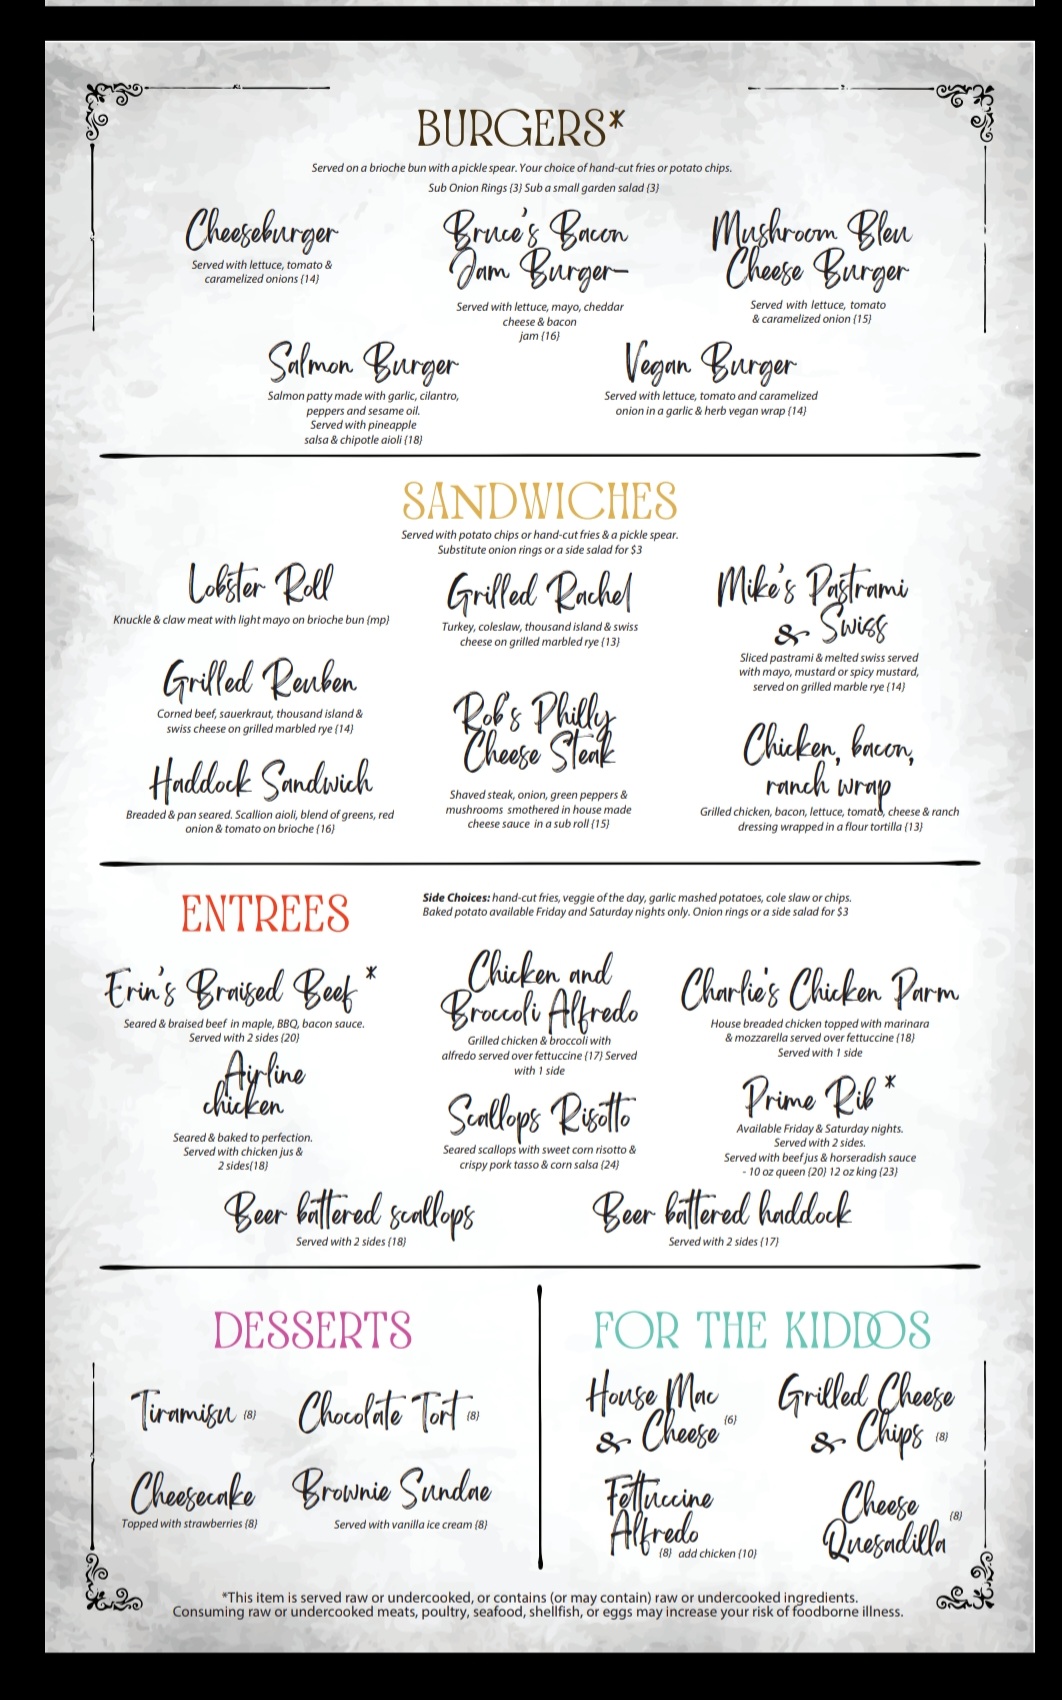 BURGERS*
Served on a brioche bun with a pickle spear. Your choice of hand-cut fries or potato chips.
Sub Onion Rings {3} Sub a small garden salad {3}
Cheeseburger
Served with lettuce, tomato &
caramelized onions {14}
Bruce's Bacon
Jam Burger-
Served with lettuce, mayo, cheddar
cheese & bacon
jam {16}
Mushroom Bleu
Cheese Burger
Served with lettuce, tomato
& caramelized onion {15}
Salmon Burger
Salmon patty made with garlic, cilantro,
peppers and sesame oil.
Served with pineapple
salsa & chipotle aioli {18}
Vegan Burger
Served with lettuce, tomato and caramelized
onion in a garlic & herb vegan wrap {14}
SANDWICHES
Served with potato chips or hand-cut fries & a pickle spear.
Substitute onion rings or a side salad for $3
Lobster Roll
Knuckle & claw meat with light mayo on brioche bun {mp}
Grilled Reuben
Corned beef, sauerkraut, thousand island &
swiss cheese on grilled marbled rye {14}
Haddock Sandwich
Breaded & pan seared. Scallion aioli, blend of greens, red
onion & tomato on brioche {16}
Grilled Rachel
Turkey, coleslaw, thousand island & swiss
cheese on grilled marbled rye {13}
Rob's Philly
Cheese Steak
Shaved steak, onion, green peppers &
mushrooms smothered in house made
cheese sauce in a sub roll {15}
Mike's Pastrami
& Swiss
Sliced pastrami & melted swiss served
with mayo, mustard or spicy mustard,
served on grilled marble rye {14}
Chicken, bacon,
ranch wrap
Grilled chicken, bacon, lettuce, tomato, cheese & ranch
dressing wrapped in a flour tortilla {13}
ENTREES
Side Choices: hand-cut fries, veggie of the day, garlic mashed potatoes, cole slaw or chips.
Baked potato available Friday and Saturday nights only. Onion rings or a side salad for $3
Erin's Braised Beef *
Seared & braised beef in maple, BBQ, bacon sauce.
Served with 2 sides {20}
Airline
chicken
Seared & baked to perfection.
Served with chicken jus &
2 sides{18}
Chicken and
Broccoli Alfredo
Grilled chicken & broccoli with
alfredo served over fettuccine {17} Served
with 1 side
Scallops Risotto
Seared scallops with sweet corn risotto &
crispy pork tasso & corn salsa {24}
Charlie's Chicken Parm
House breaded chicken topped with marinara
& mozzarella served over fettuccine {18}
Served with 1 side
Prime Rib *
Available Friday & Saturday nights.
Served with 2 sides.
Served with beef jus & horseradish sauce
- 10 oz queen {20} 12 oz king {23}
Beer battered scallops
Served with 2 sides {18}
Beer battered haddock
Served with 2 sides {17}
DESSERTS
Tiramisu {8}
Chocolate Tort {8}
Cheesecake
Topped with strawberries {8}
Brownie Sundae
Served with vanilla ice cream {8}
FOR THE KIDDOS
House Mac
& Cheese {6}
Grilled Cheese
& Chips {8}
Fettuccine
Alfredo
{8} add chicken {10}
Cheese
Quesadilla {8}
*This item is served raw or undercooked, or contains (or may contain) raw or undercooked ingredients.
Consuming raw or undercooked meats, poultry, seafood, shellfish, or eggs may increase your risk of foodborne illness.